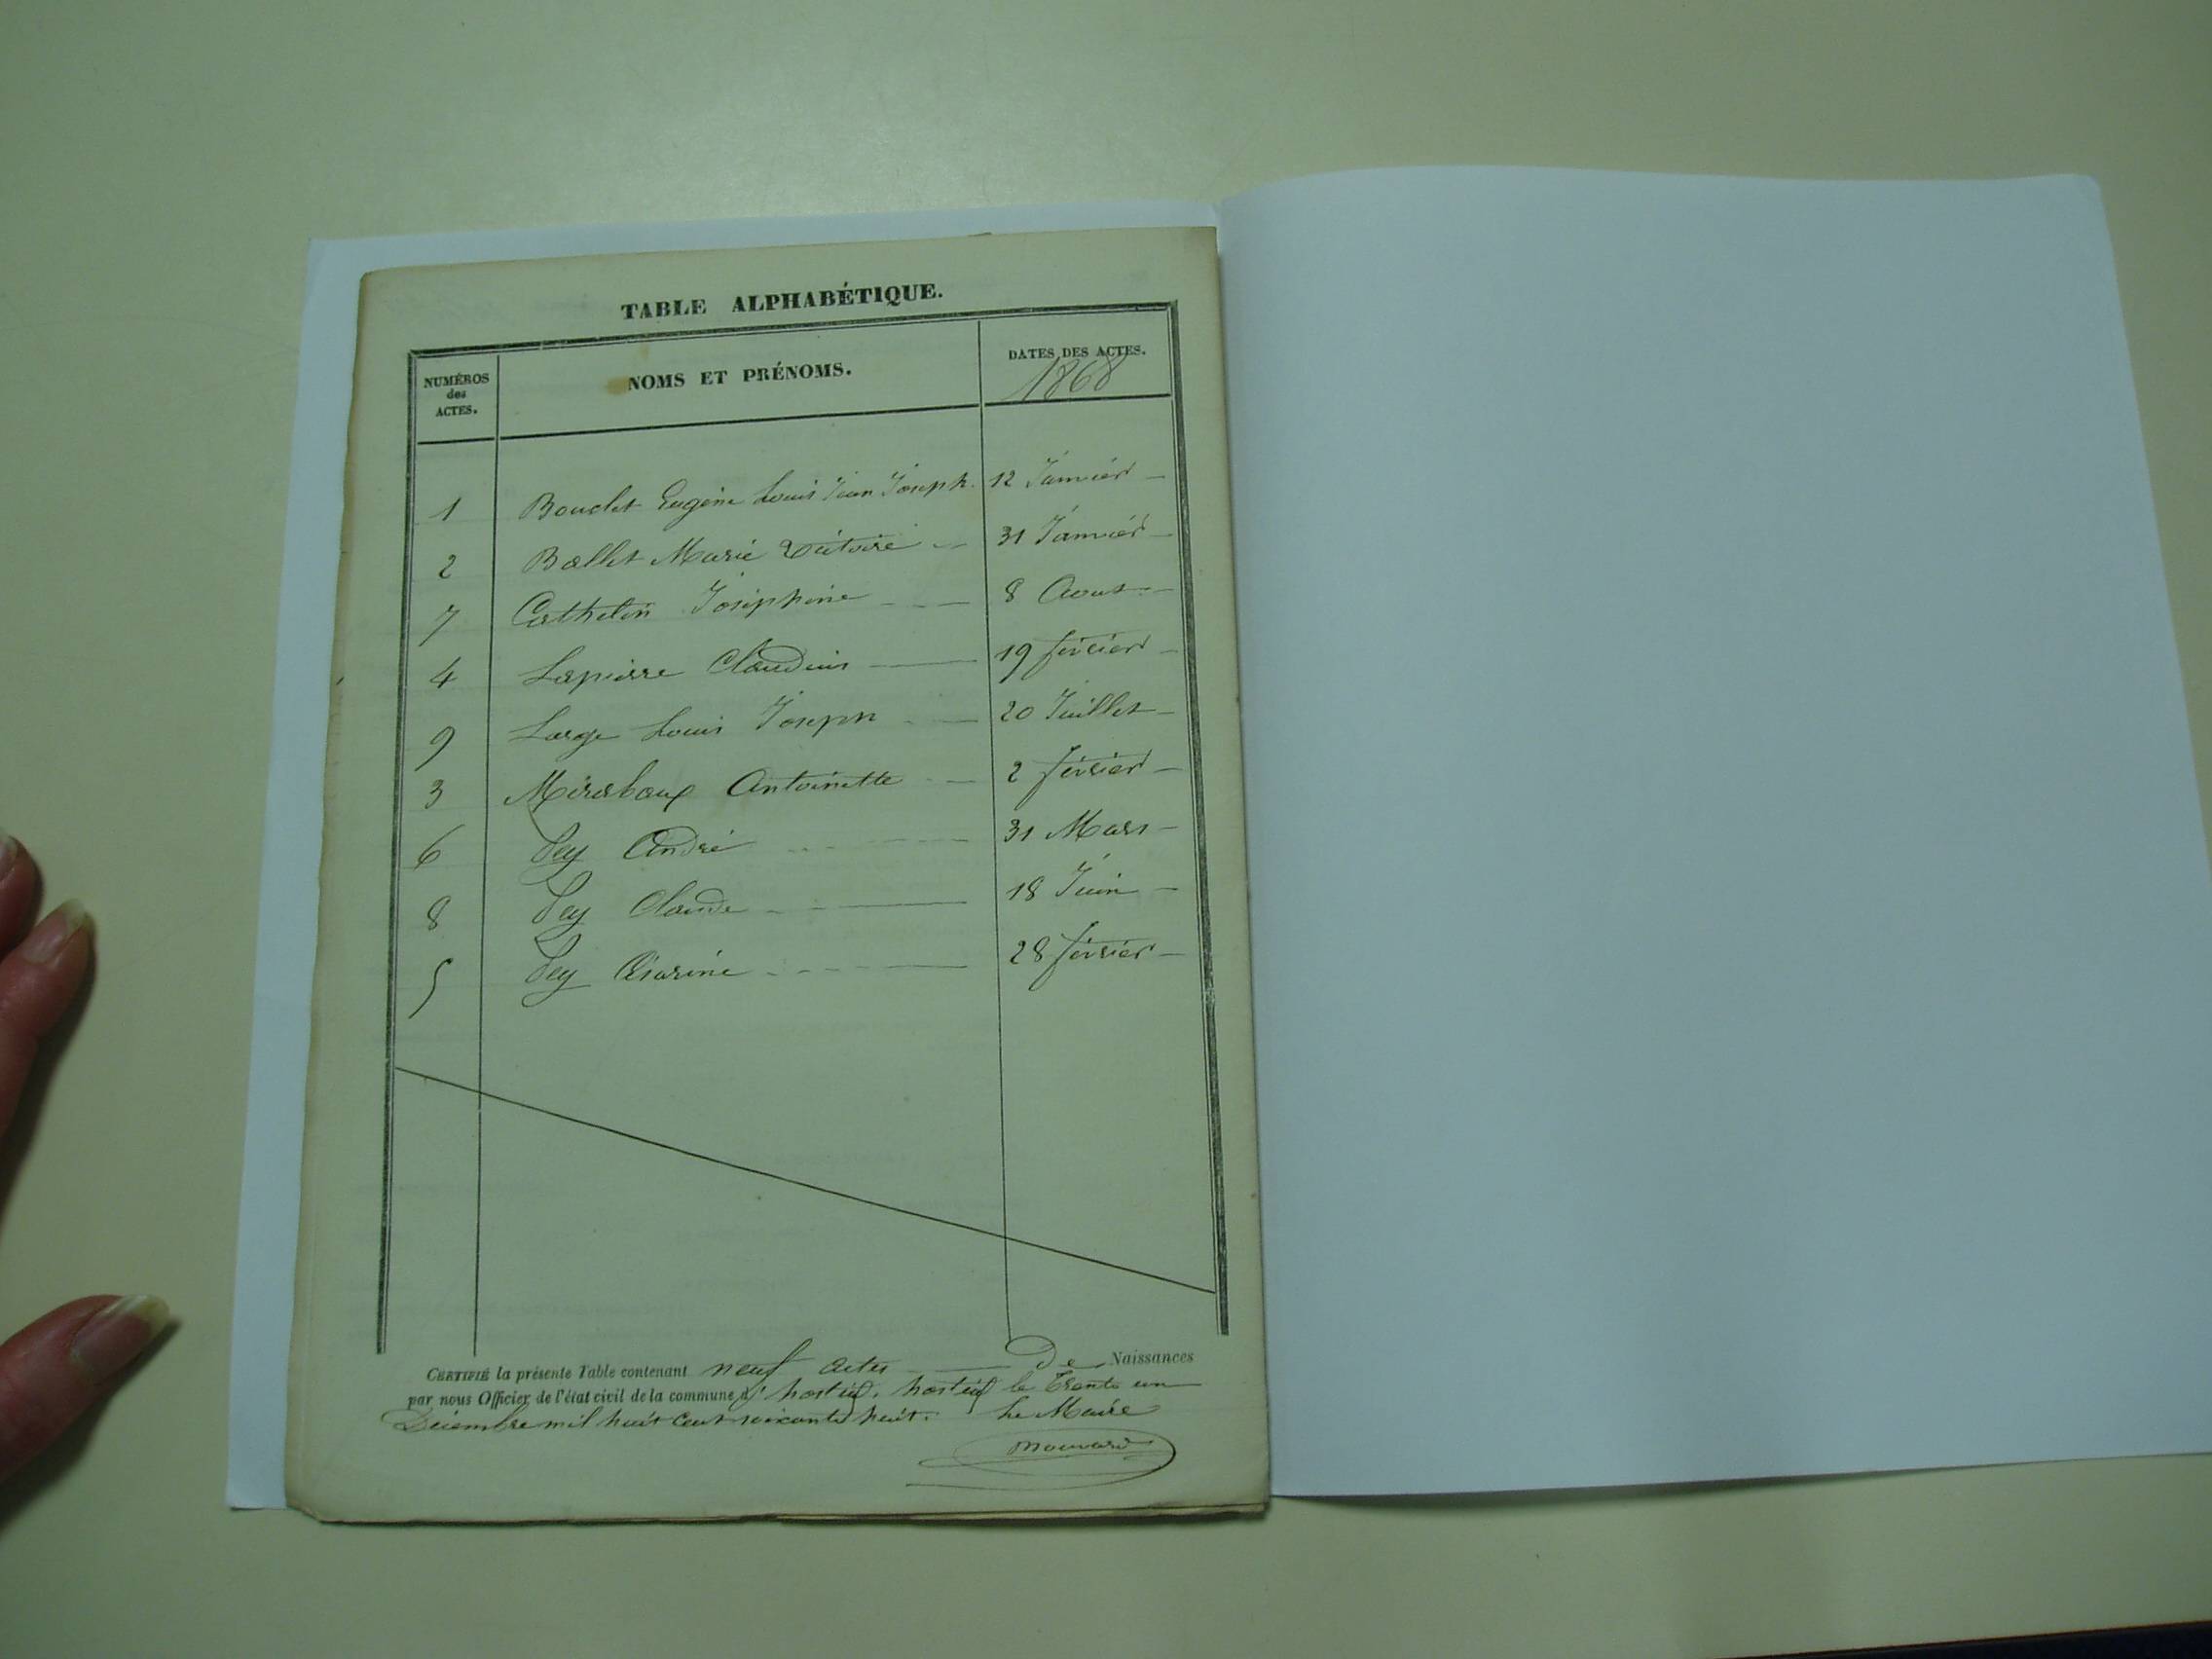 TABLE ALPHABÉTIQUE.
NUMÉROS des ACTES. NOMS ET PRÉNOMS. DATES DES ACTES.
1868
1 Bouclet Eugène Louis Jean Joseph. 12 Janvier
2 Ballet Marie Victoire 31 Janvier
7 Cathelin Joséphine 8 Aout
4 Lapierre Claudius 19 février
9 Large Louis Joseph 20 Juillet
3 Mirabaux Antoinette 2 février
6 Pey André 31 Mars
8 Pey Claude 18 Juin
5 Pey Césarine 28 février
CERTIFIÉ la présente Table contenant neuf actes De Naissances
par nous Officier de l'état civil de la commune d' le Trente un
Décembre mil huit cent soixante huit. Le Maire